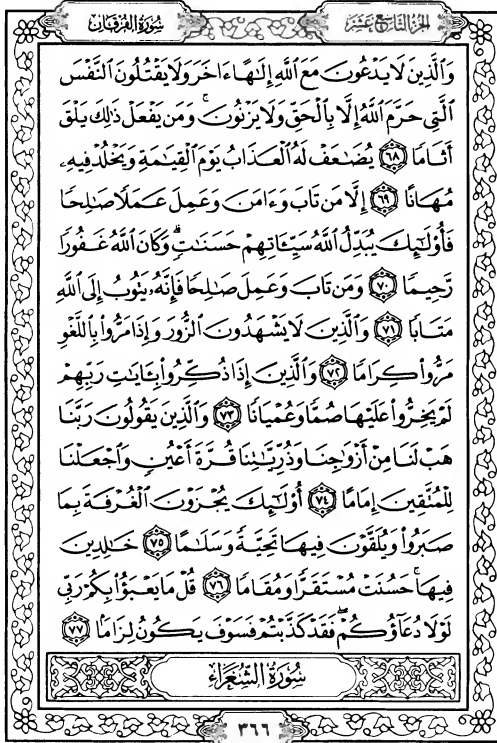 سُورَةُ الفُرْقَانِ الجُزْءُ التَّاسِعَ عَشَرَ
وَالَّذِينَ لَا يَدْعُونَ مَعَ اللَّهِ إِلَٰهًا ءَاخَرَ وَلَا يَقْتُلُونَ النَّفْسَ
الَّتِي حَرَّمَ اللَّهُ إِلَّا بِالْحَقِّ وَلَا يَزْنُونَ ۚ وَمَن يَفْعَلْ ذَٰلِكَ يَلْقَ
أَثَامًا ٦٨ يُضَٰعَفْ لَهُ الْعَذَابُ يَوْمَ الْقِيَٰمَةِ وَيَخْلُدْ فِيهِۦ
مُهَانًا ٦٩ إِلَّا مَن تَابَ وَءَامَنَ وَعَمِلَ عَمَلًا صَٰلِحًا
فَأُو۟لَٰٓئِكَ يُبَدِّلُ اللَّهُ سَيِّـَٔاتِهِمْ حَسَنَٰتٍ ۗ وَكَانَ اللَّهُ غَفُورًا
رَّحِيمًا ٧٠ وَمَن تَابَ وَعَمِلَ صَٰلِحًا فَإِنَّهُۥ يَتُوبُ إِلَى اللَّهِ
مَتَابًا ٧١ وَالَّذِينَ لَا يَشْهَدُونَ الزُّورَ وَإِذَا مَرُّوا۟ بِاللَّغْوِ
مَرُّوا۟ كِرَامًا ٧٢ وَالَّذِينَ إِذَا ذُكِّرُوا۟ بِـَٔايَٰتِ رَبِّهِمْ
لَمْ يَخِرُّوا۟ عَلَيْهَا صُمًّا وَعُمْيَانًا ٧٣ وَالَّذِينَ يَقُولُونَ رَبَّنَا
هَبْ لَنَا مِنْ أَزْوَٰجِنَا وَذُرِّيَّٰتِنَا قُرَّةَ أَعْيُنٍ وَاجْعَلْنَا
لِلْمُتَّقِينَ إِمَامًا ٧٤ أُو۟لَٰٓئِكَ يُجْزَوْنَ الْغُرْفَةَ بِمَا
صَبَرُوا۟ وَيُلَقَّوْنَ فِيهَا تَحِيَّةً وَسَلَٰمًا ٧٥ خَٰلِدِينَ
فِيهَا ۚ حَسُنَتْ مُسْتَقَرًّا وَمُقَامًا ٧٦ قُلْ مَا يَعْبَؤُا۟ بِكُمْ رَبِّي
لَوْلَا دُعَآؤُكُمْ ۖ فَقَدْ كَذَّبْتُمْ فَسَوْفَ يَكُونُ لِزَامًا ٧٧
سُورَةُ الشُّعَرَاءِ
٣٦٦